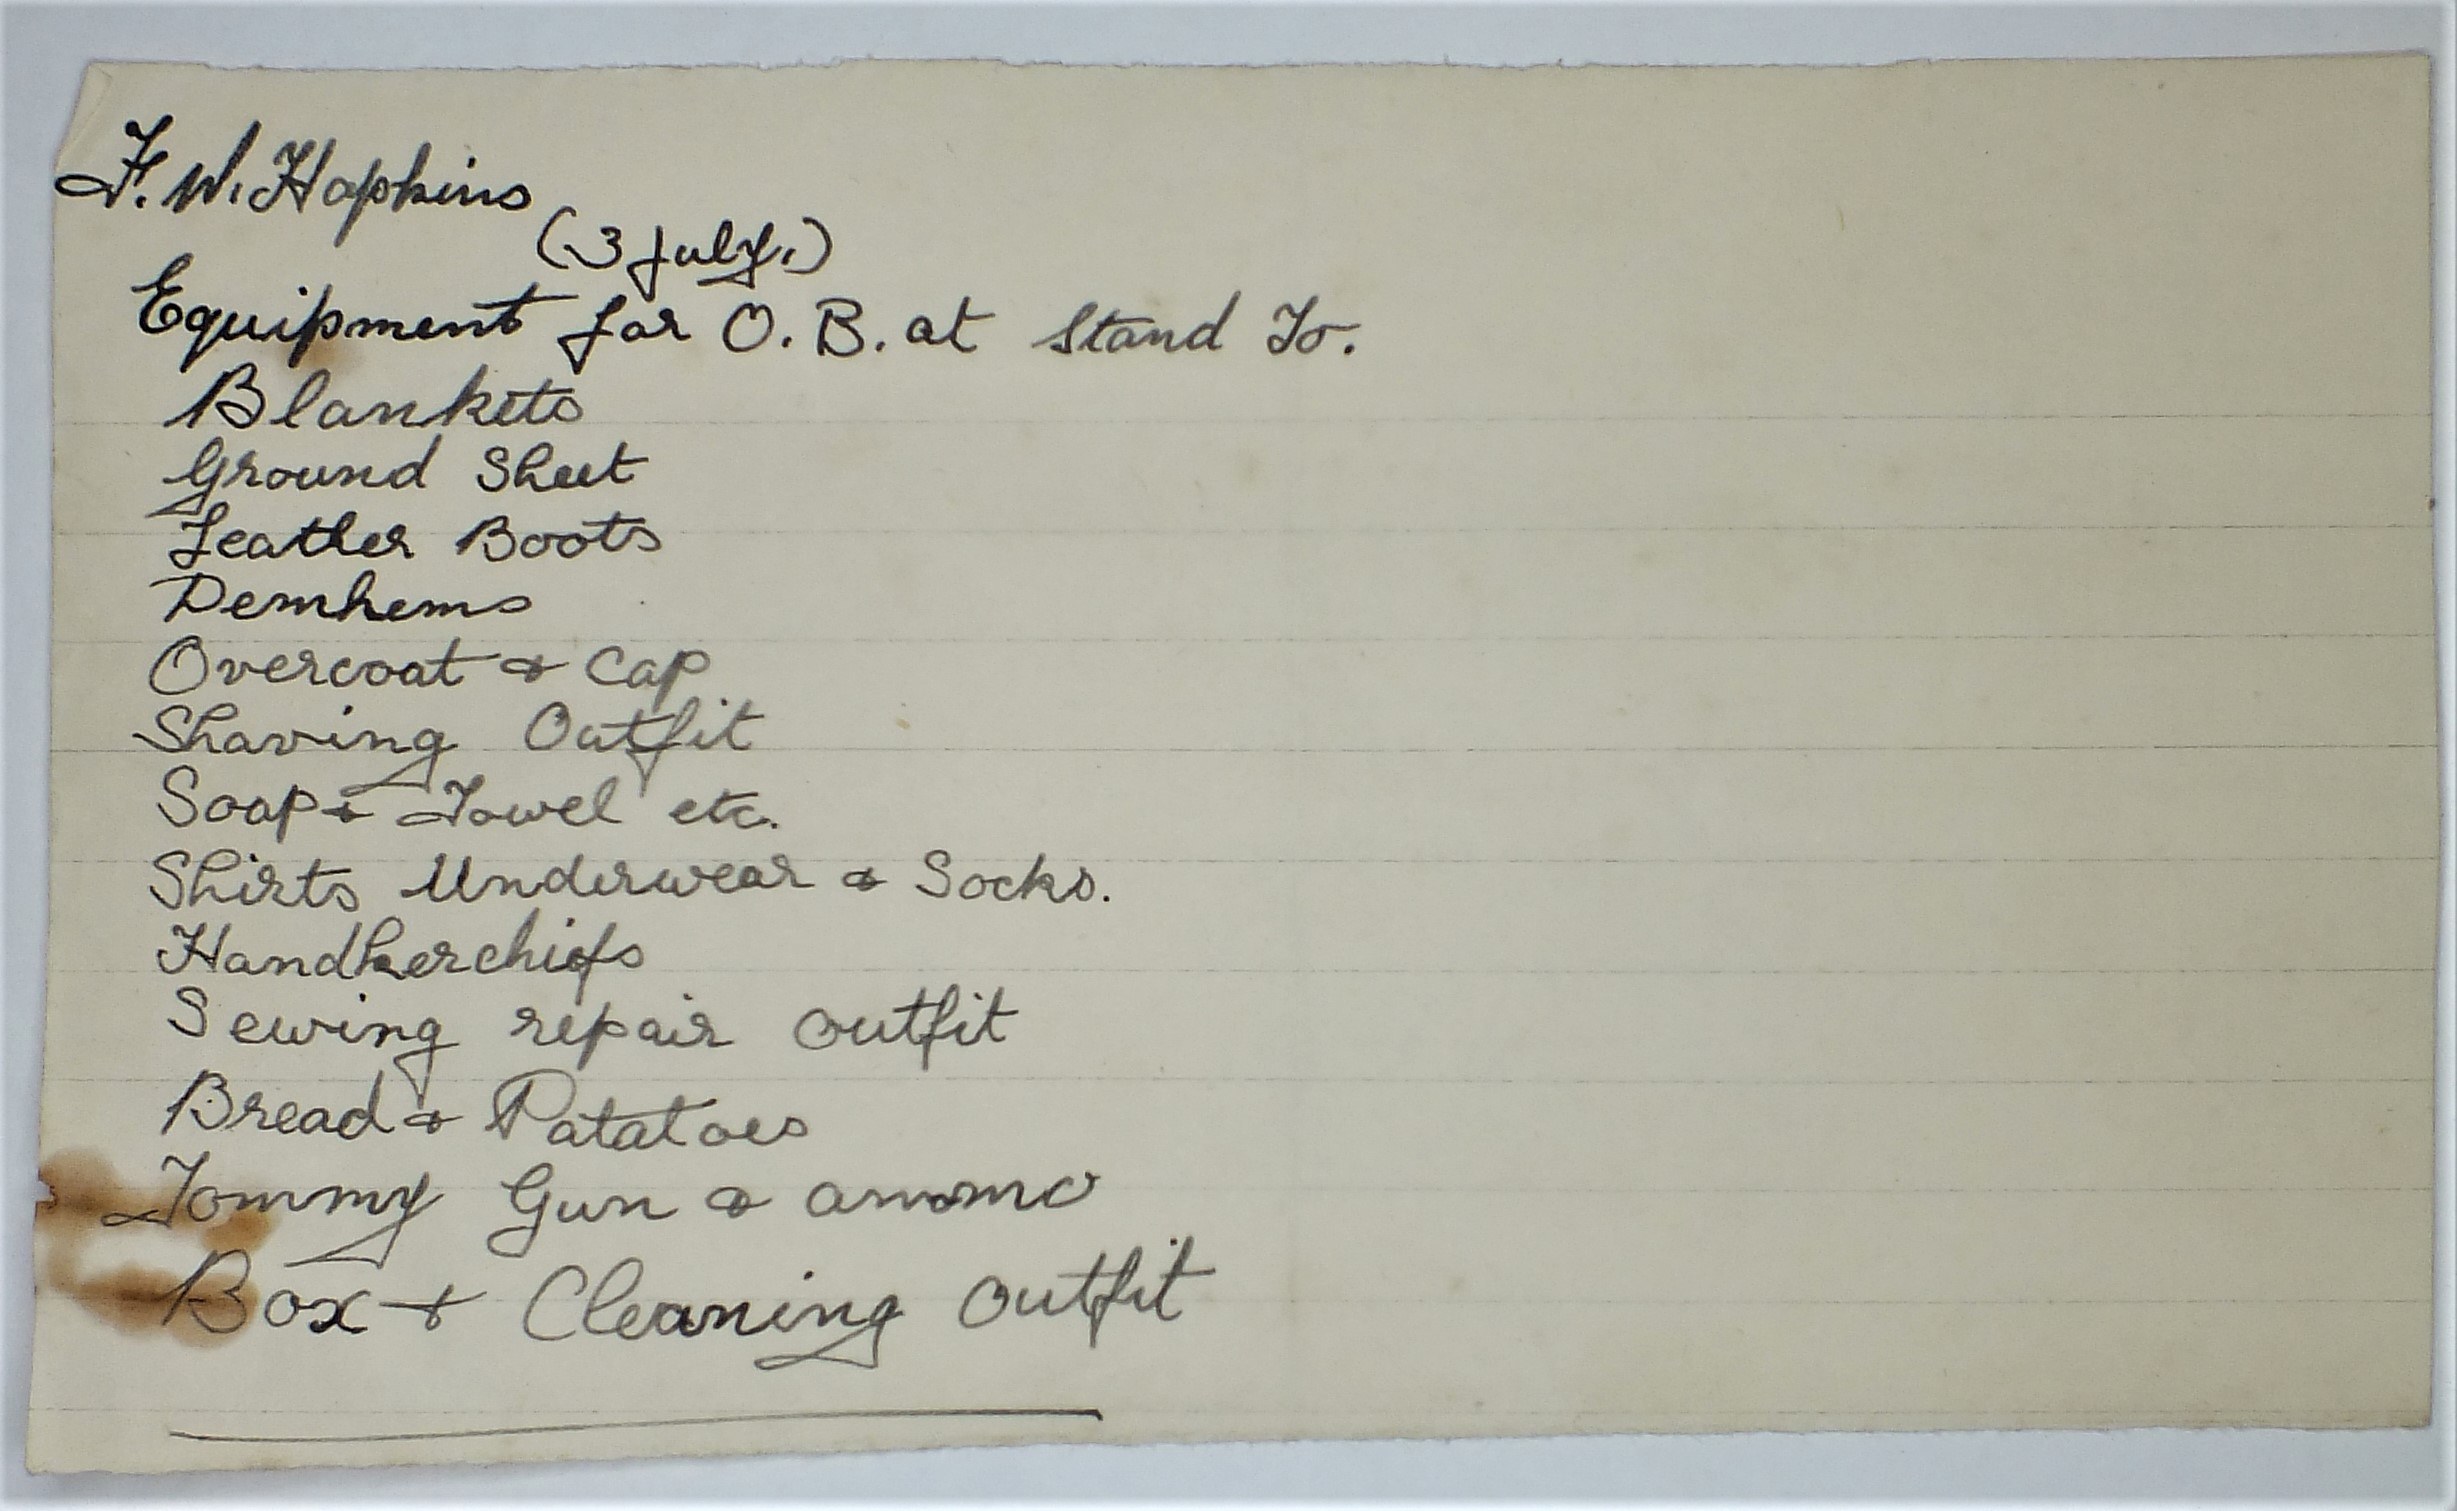 F. W. Hopkins
(3 July.)
Equipment for O. B. at Stand To.
Blankets
Ground Sheet
Leather Boots
Demhems
Overcoat & Cap
Shaving Outfit
Soap & Towel etc.
Shirts Underwear & Socks.
Handkerchiefs
Sewing repair outfit
Bread & Patatoes
Tommy Gun & ammo
Box & Cleaning Outfit